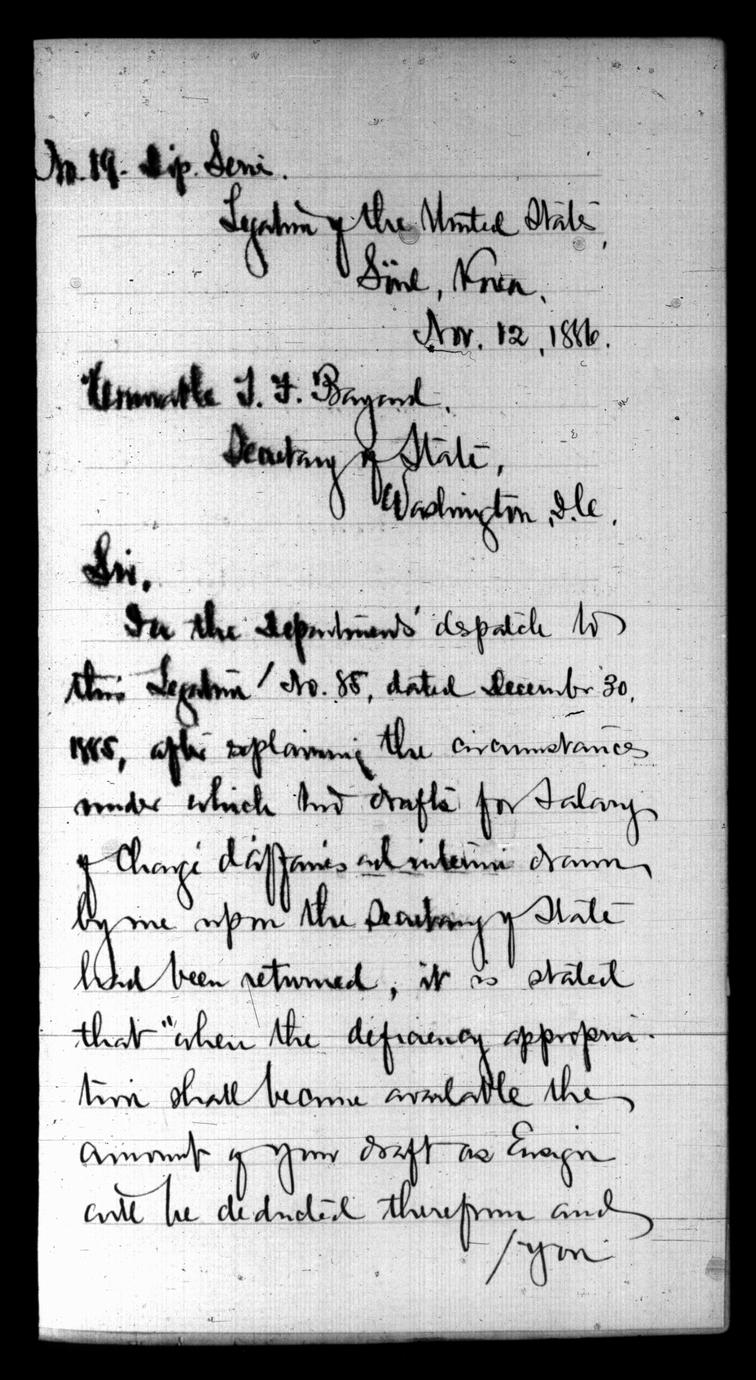 No. 19. Dip. Serie.
Legation of the United States,
Söul, Korea,
Nov. 12, 1886.
Honorable T. F. Bayard,
Secretary of State,
Washington, D.C.
Sir,
In the Departments' dispatch to
this Legation / No. 85, dated December 30,
1885, after explaining the circumstances
under which two drafts for salary
of Chargé d'affaires ad interim drawn
by me upon the Secretary of State
had been returned, it is stated
that "when the deficiency appropria-
tion shall become available the
amount of your draft as Ensign
will be deducted therefrom and
/ you